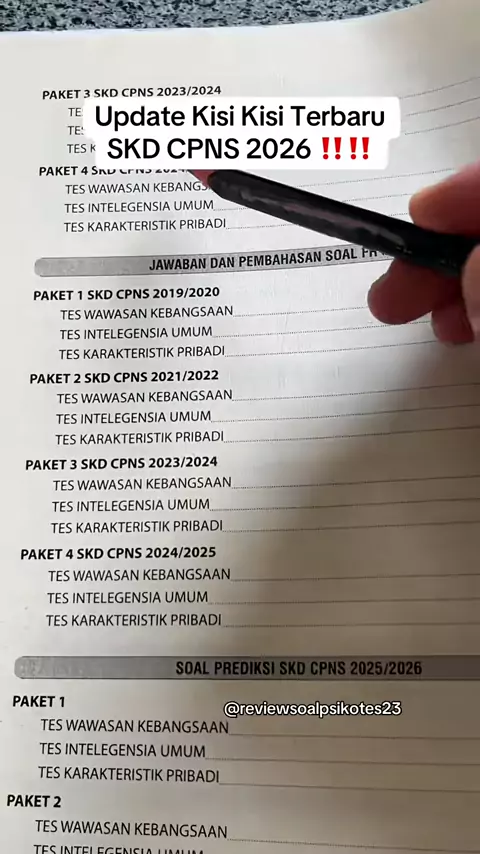 PAKET 3 SKD CPNS 2023/2024
Update Kisi Kisi Terbaru
SKD CPNS 2026 ‼️‼️
PAKET 4 SKD CPNS
TES WAWASAN
TES INTELEGENSIA UMUM
TES KARAKTERISTIK PRIBADI
JAWABAN DAN PEMBAHASAN SOAL
PAKET 1 SKD CPNS 2019/2020
TES WAWASAN KEBANGSAAN
TES INTELEGENSIA UMUM
TES KARAKTERISTIK PRIBADI
PAKET 2 SKD CPNS 2021/2022
TES WAWASAN KEBANGSAAN
TES INTELEGENSIA UMUM
TES KARAKTERISTIK PRIBADI
PAKET 3 SKD CPNS 2023/2024
TES WAWASAN KEBANGSAAN
TES INTELEGENSIA UMUM
TES KARAKTERISTIK PRIBADI
PAKET 4 SKD CPNS 2024/2025
TES WAWASAN KEBANGSAAN
TES INTELEGENSIA UMUM
TES KARAKTERISTIK PRIBADI
SOAL PREDIKSI SKD CPNS 2025/2026
PAKET 1
@reviewsoalpsikotes23
TES WAWASAN KEBANGSAAN
TES INTELEGENSIA UMUM
TES KARAKTERISTIK PRIBADI
PAKET 2
TES WAWASAN KEBANGSAAN
TES INTELEGENSIA UMUM